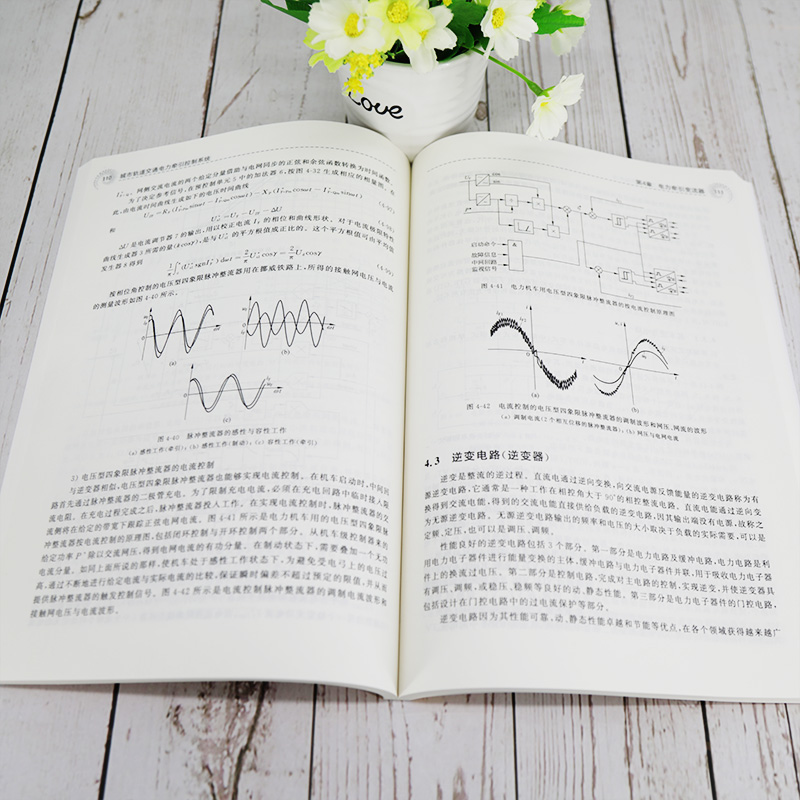 Love
110 城市轨道交通电力牵引控制系统
网侧交流电流的两个给定分量借助与电网同步的正弦和余弦函数转换为时间函数
为了决定参考信号,在预控制单元5中的加法器6,按图4-32生成相应的相量图。在
此,由电流时间曲线生成如下的电压时间曲线
(4-97)
和
(4-98)
ΔU是电流调节器7的输出,用以校正电流
的相位和曲线形状。对于电流极限特性
曲线生成器
所需的量(kcosγ),是与
的平方根值成正比的。这个平方根值可由平均值
发生器8得到
(4-99)
按相位角控制的电压型四象限脉冲整流器用在挪威铁路上,所得的接触网电压与电流
的测量波形如图4-40所示。
(a)
(b)
(c)
图4-40 脉冲整流器的感性与容性工作
(a) 感性工作(牵引); (b) 感性工作(制动); (c) 容性工作(牵引)
3) 电压型四象限脉冲整流器的电流控制
与逆变器相似,电压型四象限脉冲整流器也能够实现电流控制。在机车启动时,中间回
路首先通过脉冲整流器的二极管充电。为了限制充电电流,必须在充电回路中临时接入限
流电阻。在充电过程完成之后,脉冲整流器投入工作。在实现电流控制时,脉冲整流器的交
流侧将在给定的带宽下跟踪正弦电网电流。图4-41所示是电力机车用的电压型四象限脉
冲整流器按电流控制的原理图,包括闭环控制与开环控制两个部分。从机车级控制器来的
给定功率P*除以交流网压,得到电网电流的有功分量。在制动状态下,需要叠加一个无功
电流分量。如同上面所说的那样,使机车处于感性工作状态下,为避免受电弓上的电压过
高,通过不断地进行给定电流与实际电流的比较,保证瞬时偏差不超过预定的限值,并从而
提供脉冲整流器的触发控制信号。图4-42所示是电流控制脉冲整流器的调制电流波形和
接触网电压与电流波形。
第4章 电力牵引变流器 111
启动命令
故障信息
中间回路
监视信号
&
图4-41 电力机车用电压型四象限脉冲整流器的按电流控制原理图
(a)
(b)
图4-42 电流控制的电压型四象限脉冲整流器的调制波形和网压、网流的波形
(a) 调制电流(2个相互位移的脉冲整流器); (b) 网压与电网电流
4.3 逆变电路(逆变器)
逆变是整流的逆过程。直流电通过逆向变换,向交流电源反馈能量的逆变电路称为有
源逆变电路,它通常是一种工作在相控角大于90°的相控整流电路。直流电能通过逆向变
换得到交流电能,得到的交流电能直接供给负载的逆变电路,因其输出端没有电源,故称之
为无源逆变电路。无源逆变电路输出的频率和电压的大小取决于负载的实际需要,可以是
定频、定压,也可以是调压、调频。
性能良好的逆变电路包括3个部分。第一部分是电力电路及缓冲电路,电力电路是利
用电力电子器件进行能量变换的主体,缓冲电路与电力电子器件并联,用于吸收电力电子器
件上的换流过电压。第二部分是控制电路,完成对主电路的控制,实现逆变,并使逆变器具
有调压、调频,或稳压、稳频等良好的动、静态性能。第三部分是电力电子器件的门控电路,
包括设计在门控电路中的过电流保护等部分。
逆变电路因为其性能可靠,动、静态性能卓越和节能等优点,在各个领域获得越来越广